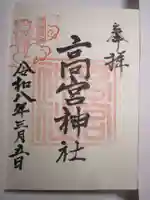 奉拝
高宮神社
令和八年三月五日